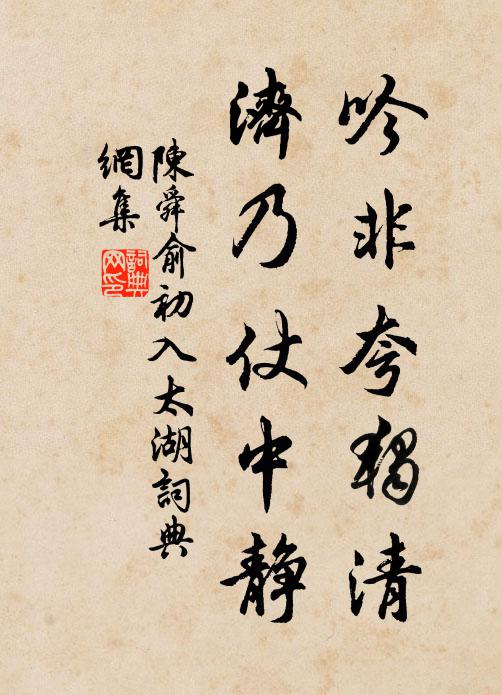 吟非夸獨清
濟乃仗中靜
陳舜俞初入太湖詞典
網集
詞典網印